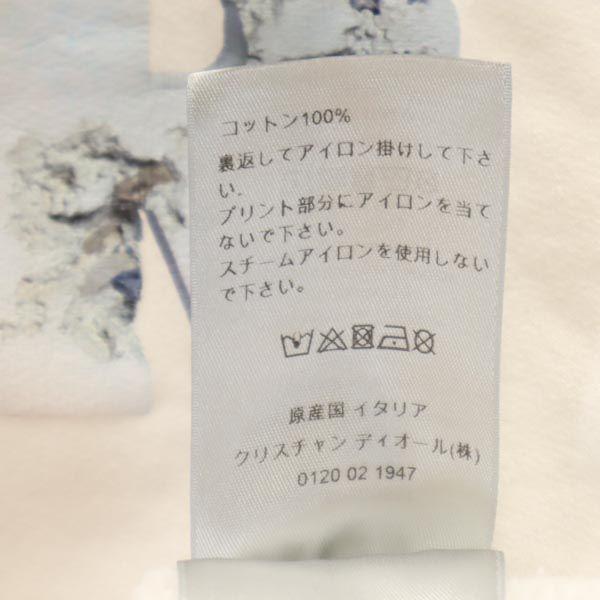 コットン100%
裏返してアイロン掛けして下さ
い.
プリント部分にアイロンを当て
ないで下さい。
スチームアイロンを使用しない
で下さい。
原産国 イタリア
クリスチャン ディオール(株)
0120 02 1947